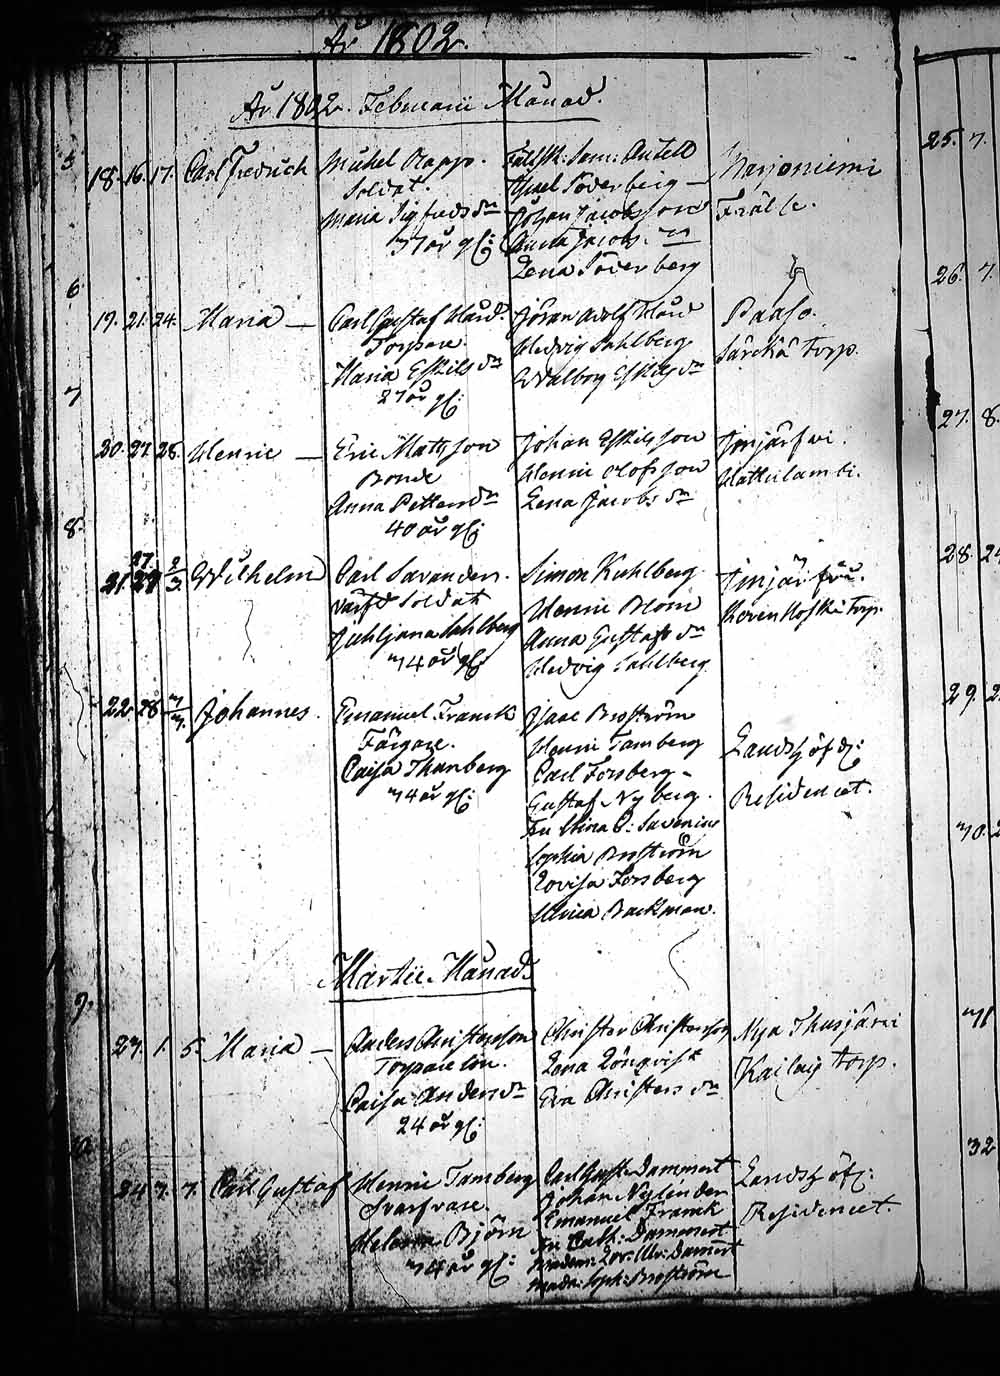 År 1802.
År 1802. Februarii Månad.
18. 16. 17. Carl Fredrich
Michel Rapp.
Soldat.
Maria Sigfredsdr
37 år gl:
Fältsk: Sam: Antell
Israel Söderberg
Johan Jacobsson
Anna Jacobs dr
Lena Söderberg
Harjoniemi
Frälse.
19. 21. 24. Maria
Carl Gustaf Hård.
Torpare.
Maria Eskilsdr
27 år gl:
Jöran Adolf Hård
Hedvig Sahlberg
Walborg Eskilsdr
Paaso.
Särckä Torp.
20. 27. 28. Henric
Eric Matsson
Bonde
Anna Pettersdr
40 år gl:
Johan Eskilsson
Henric Olofsson
Lena Jacobsdr
Imjärfvi.
Hattulambi.
21. 27. 2/3. Wilhelm
Carl Savander.
värfd Soldat
Juhljana Sahlberg
34 år gl:
Simon Kuhlberg
Henric Blom
Anna Gustafsdr
Hedvig Sahlberg
Imjärfvi.
Torp.
22. 28. 3/3. Johannes.
Emanuel Franck
Färgare.
Caisa Thunberg
34 år gl:
Isaac Broström
Henric Tamberg
Carl Forsberg
Gustaf Nyberg.
Fru Stina C: Savenius
Sophia Broström
Lovisa Forsberg
Ulrica Backman.
Landshöfd:
Residencet.
Martii Månad.
23. 1. 5. Maria
Anders Christersson
Torpare Son.
Caisa Andersdr
24 år gl:
Christer Christersson
Lena Lönqvist
Eva Christersdr
Nya Ihusjärvi
Torp.
24. 3. 7. Carl Gustaf
Henric Tamberg
Svarfvare.
Helena Björn
34 år gl:
Carl Gust: Dammert
Johan Nylénder
Emanuel Franck
Fru Cath: Dammert
Madem: Lov: Ulr: Damert
Mada: Soph: Broström
Landshöfd:
Residencet.
5
6
7
8.
9.
25. 7.
26. 7.
27. 8.
28. 24
29. 2
30. 2
31
32